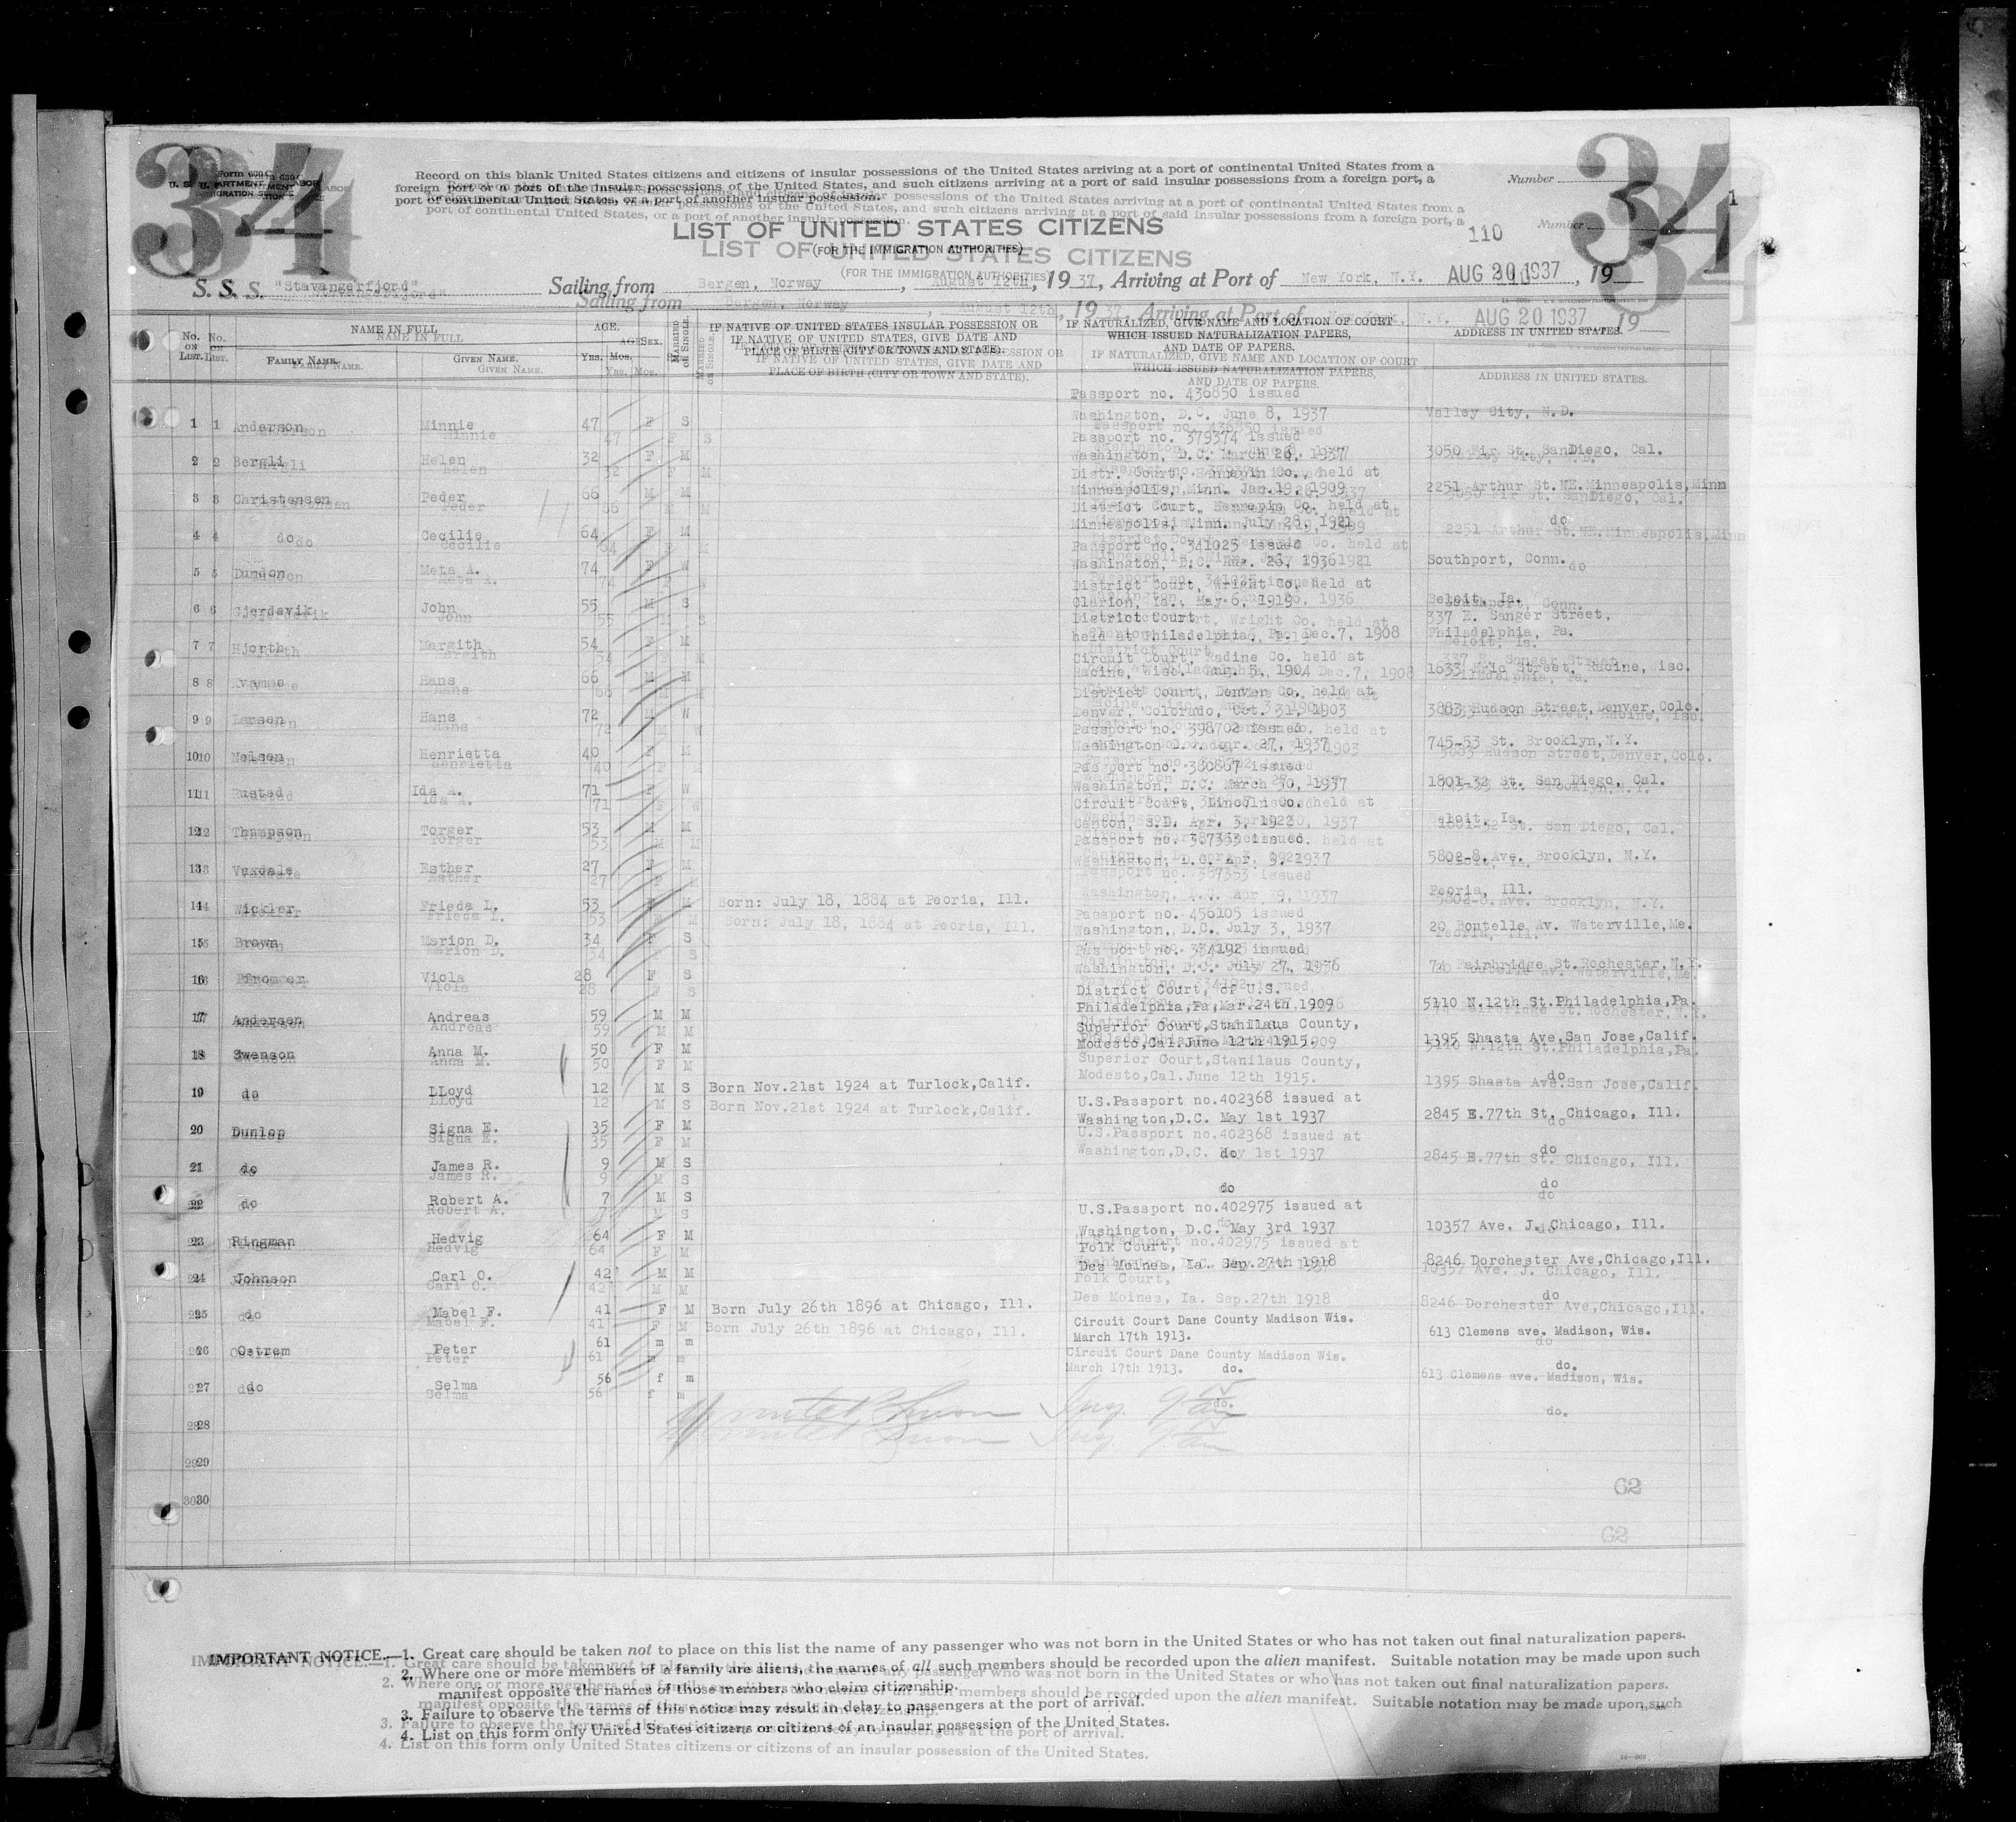 34
34
Form 630 C
U. S. DEPARTMENT OF LABOR
IMMIGRATION SERVICE
Record on this blank United States citizens and citizens of insular possessions of the United States arriving at a port of continental United States from a
foreign port or a port of the insular possessions of the United States, and such citizens arriving at a port of said insular possessions from a foreign port, a
port of continental United States, or a port of another insular possession.
Number
1
LIST OF UNITED STATES CITIZENS
(FOR THE IMMIGRATION AUTHORITIES)
110
S. S. "Stavangerfjord" Sailing from Bergen, Norway, August 12th, 19 37, Arriving at Port of New York, N.Y. AUG 20 1937, 19
No. ON LIST. NAME IN FULL AGE. SEX. MARRIED OR SINGLE. IF NATIVE OF UNITED STATES INSULAR POSSESSION OR IF NATIVE OF UNITED STATES, GIVE DATE AND PLACE OF BIRTH (CITY OR TOWN AND STATE). IF NATURALIZED, GIVE NAME AND LOCATION OF COURT WHICH ISSUED NATURALIZATION PAPERS, AND DATE OF PAPERS. ADDRESS IN UNITED STATES.
FAMILY NAME. GIVEN NAME. Yrs. Mos.
1 Anderson Minnie 47 F S Passport no. 436850 issued Washington, D.C. June 8, 1937 Valley City, N.D.
2 Bergli Helen 32 F M Passport no. 379374 issued Washington, D.C. March 26, 1937 3050 Fir St. SanDiego, Cal.
3 Christensen Peder 66 M M Distr. Court, Hennepin Co. held at Minneapolis, Minn. Jan.19, 1909 2251 Arthur St.NE.Minneapolis,Minn
4 do Cecilie 64 F M District Court, Hennepin Co. held at Minneapolis, Minn. July 28, 1921 do
5 Dundon Meta A. 74 F W Passport no. 341025 issued Washington, D.C. Aug. 26, 1936 Southport, Conn.
6 Gjerdevik John 55 M S District Court, Wright Co. held at Clarion, Ia., May 6, 1919 Beloit, Ia.
7 Hjorth Margith 54 F M District Court held at Philadelphia, Pa. Dec.7, 1908 337 E. Sanger Street, Philadelphia, Pa.
8 Kvamme Hans 66 M M Circuit Court, Radine Co. held at Racine, Wisc. Aug. 3, 1904 1633 Eric Street, Racine, Wisc.
9 Larsen Hans 72 M W District Court, Denver Co. held at Denver, Colorado, Oct. 31, 1903 3883 Hudson Street,Denver,Colo.
10 Nelsen Henrietta 40 F M Passport no. 398702 issued Washington D.C. Apr. 27, 1937 745-53 St. Brooklyn,N.Y.
11 Rusted Ida A. 71 F W Passport no. 380807 issued Washington, D.C. March 30, 1937 1801-32 St. San Diego, Cal.
12 Thompson Torger 53 M M Circuit Court, Lincoln Co. held at Canton, S.D. Apr. 3, 1922 Beloit, Ia.
13 Vaxdale Esther 27 F M Passport no. 387353 issued Washington, D.C. Apr. 9, 1937 5802-8.Ave. Brooklyn, N.Y.
14 Wickler Frieda L. 53 F M Born: July 18, 1884 at Peoria, Ill. Peoria, Ill.
15 Brown Marion D. 34 F S Passport no. 456105 issued Washington., D.C., July 3, 1937 20 Boutelle Av. Waterville,Me.
16 Pfromer Viola 28 F S Pas port no. 334192 issued Washington, D.C. July 27, 1936 74 Fairbridge St.Rochester,N.Y.
17 Andersen Andreas 59 M M District Court, of U.S. Philadelphia,Pa,Mar.24th 1909 5110 N.12th St.Philadelphia,Pa.
18 Swenson Anna M. 50 F M Superior Court,Stanilaus County, Modesto,Cal.June 12th 1915. 1395 Shasta Ave.San Jose,Calif.
19 do LLoyd 12 M S Born Nov.21st 1924 at Turlock,Calif. do
20 Dunlop Signa E. 35 F M U.S.Passport no.402368 issued at Washington,D.C. May 1st 1937 2845 E.77th St. Chicago, Ill.
21 do James R. 9 M S do do
22 do Robert A. 7 M S do do
23 Ringman Hedvig 64 F M U.S.Passport no.402975 issued at Washington, D.C. May 3rd 1937 10357 Ave. J. Chicago, Ill.
24 Johnson Carl O. 42 M M Polk Court, Des Moines, Ia. Sep.27th 1918 8246 Dorchester Ave,Chicago,Ill.
25 do Mabel F. 41 F M Born July 26th 1896 at Chicago, Ill. do
26 Ostrem Peter 61 m m Circuit Court Dane County Madison Wis. March 17th 1913. 613 Clemens ave. Madison, Wis.
27 do Selma 56 f m do. do.
28
29
30
62
IMPORTANT NOTICE.—1. Great care should be taken not to place on this list the name of any passenger who was not born in the United States or who has not taken out final naturalization papers.
2. Where one or more members of a family are aliens, the names of all such members should be recorded upon the alien manifest. Suitable notation may be made upon such
manifest opposite the names of those members who claim citizenship.
3. Failure to observe the terms of this notice may result in delay to passengers at the port of arrival.
4. List on this form only United States citizens or citizens of an insular possession of the United States.